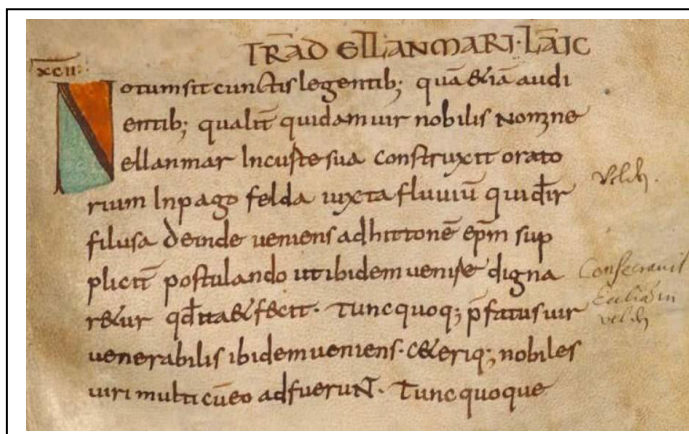 TRĀD ELLANMARI·LĀIC
XCII:
Notum sit cunctis legentib; quā &iā audi
entib; qualit̄ quidam uir nobilis nomine
ellanmar Incuste sua construxit orato
rium Inpago felda iuxta fluuiū quid̄r
filusa deinde ueniens adhittonē ep̄m sup
plicit̄ postulando utibidem uenire digna
r&ur qd̄ ita&fecit· Tunc quoq; p̄fatus uir
uenerabilis ibidem ueniens· c&eriq; nobiles
uiri multi cūeo adfueruNT· Tunc quoque
Consecravit
in